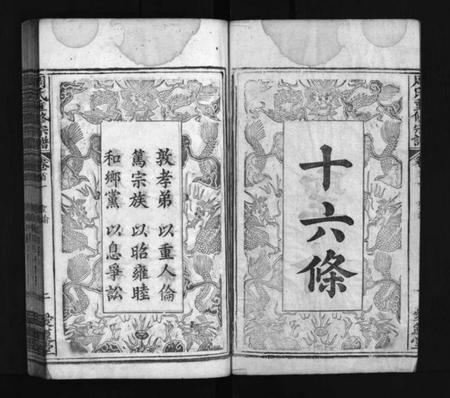 十六條
敦孝弟 以重人倫
篤宗族 以昭雍睦
和鄉黨 以息爭訟
氏重修宗譜